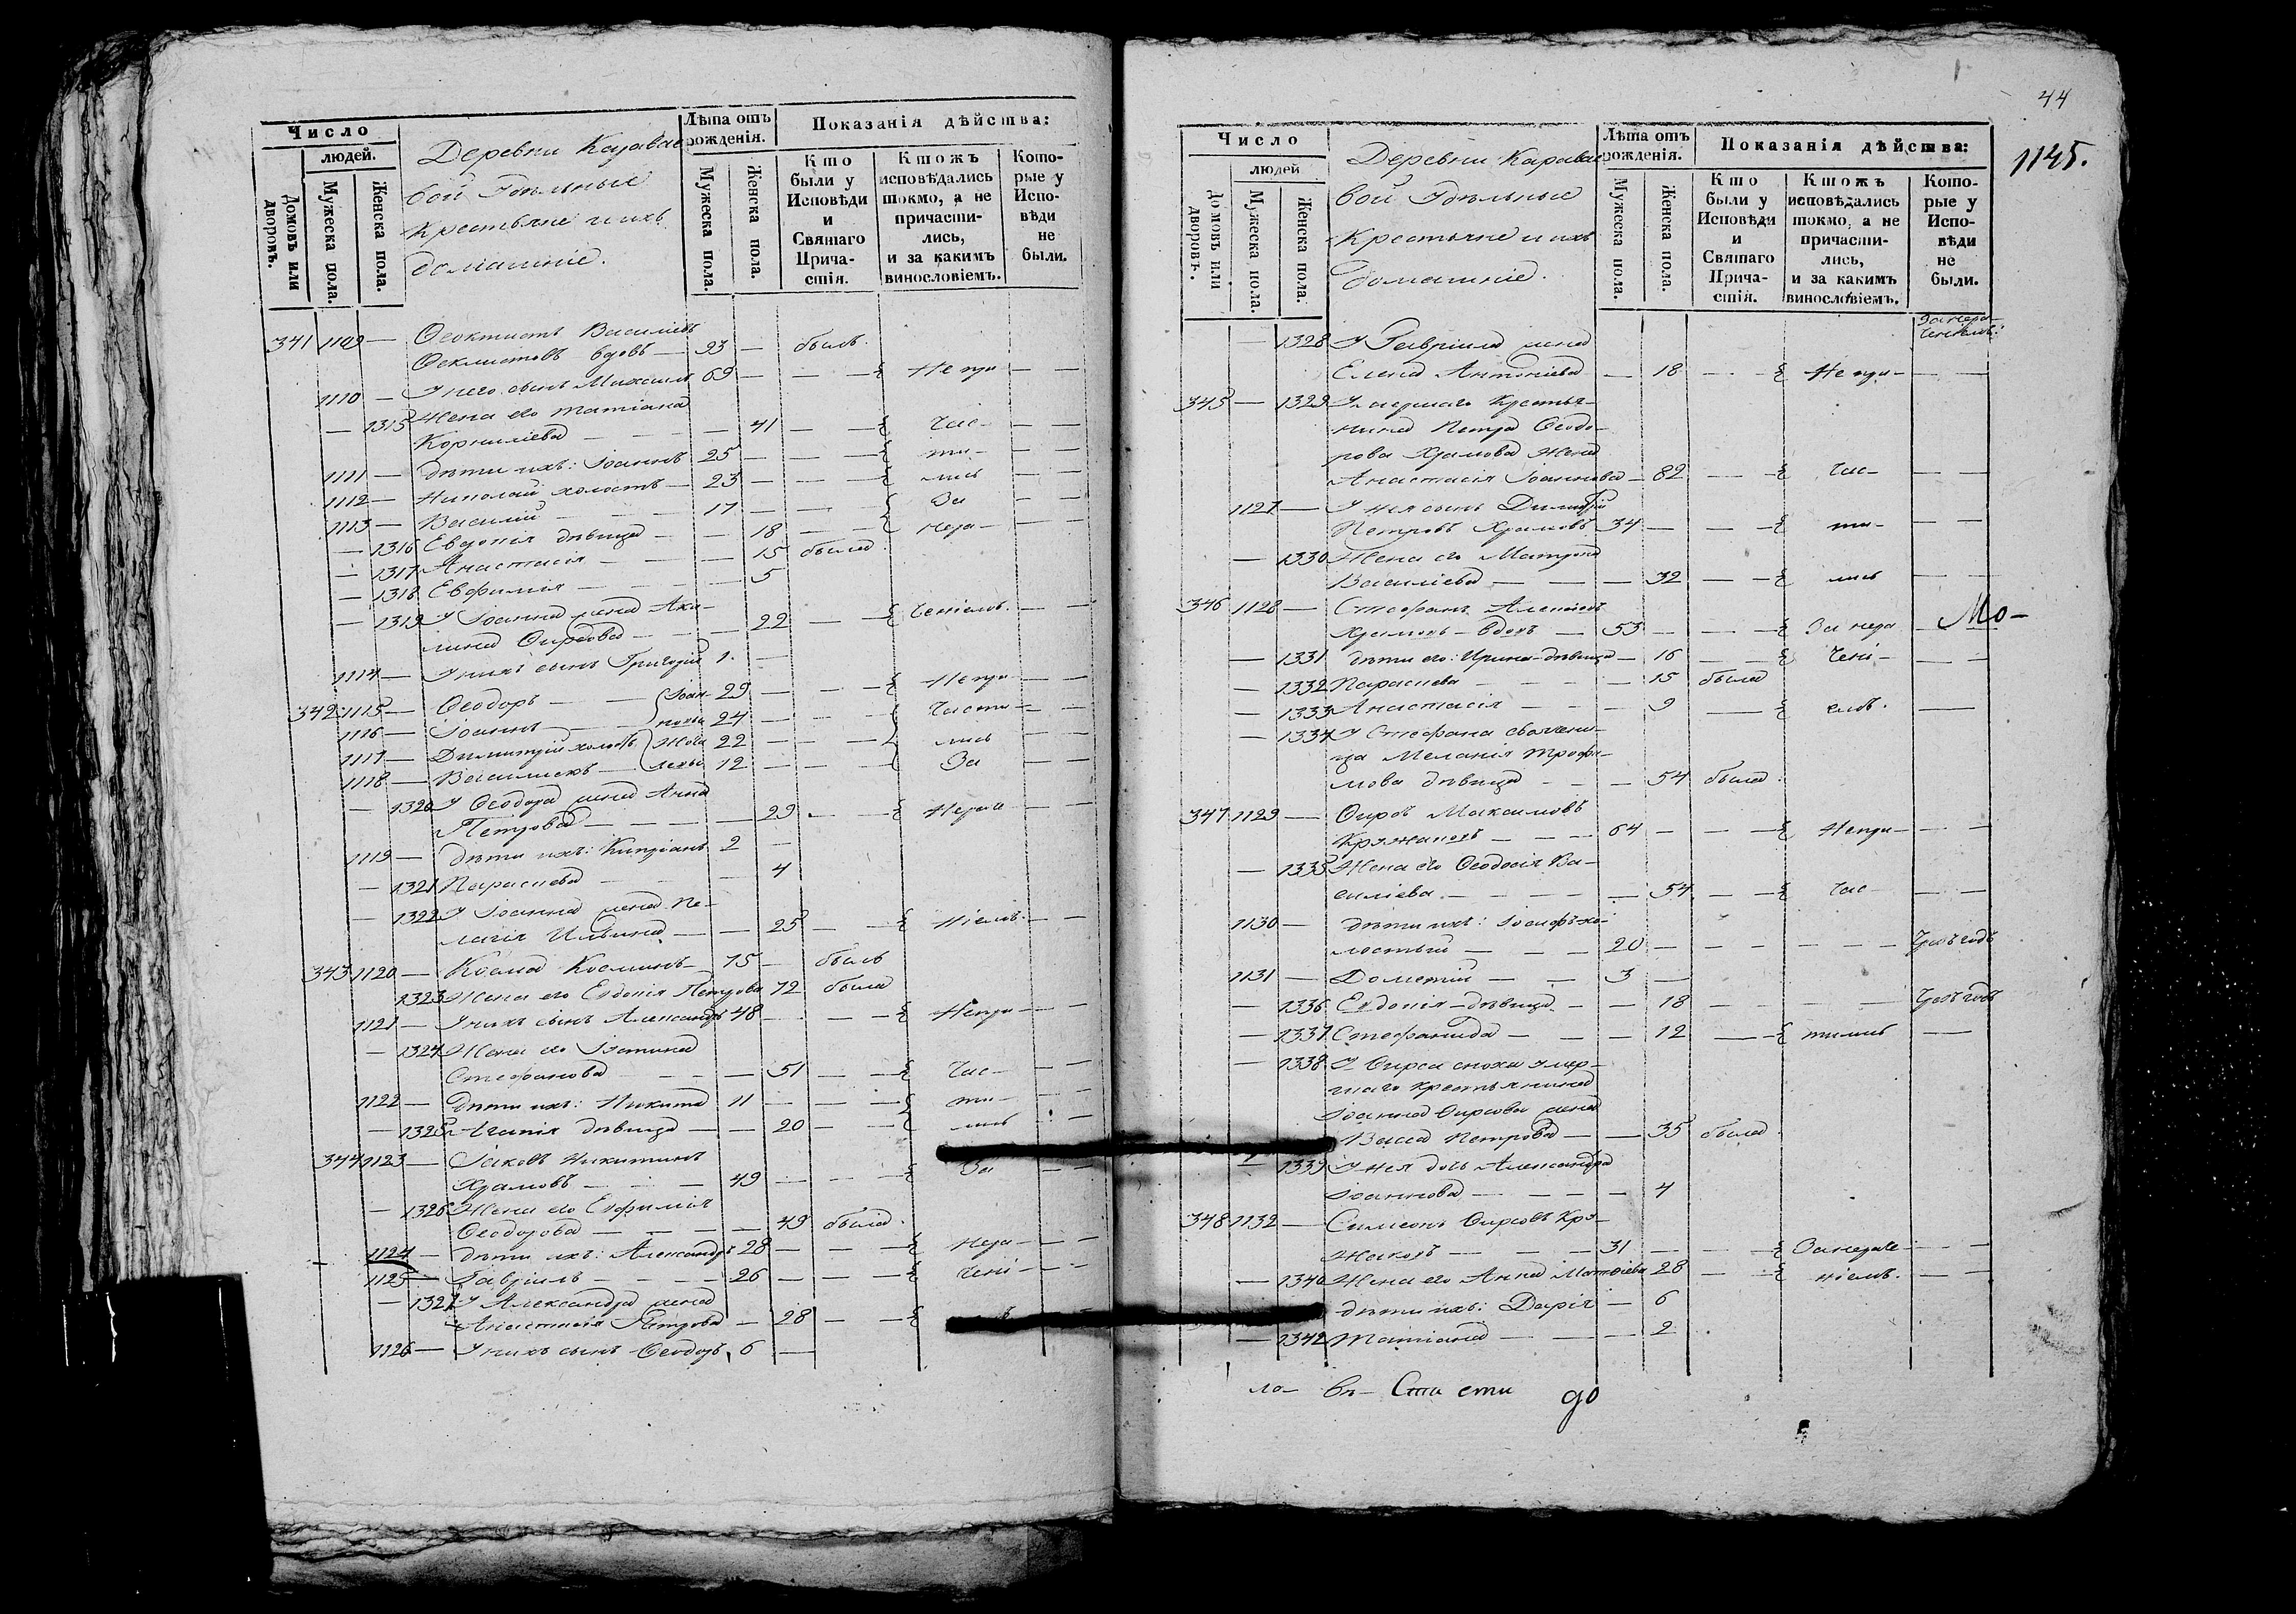 Число
людей.
Домовъ или дворовъ.
Мужеска пола.
Женска пола.
Деревни Каравае
вой Удѣльные
крестьяне и ихъ
домашніе.
Лѣта отъ
рожденія.
Мужеска пола.
Женска пола.
Показанія дѣйства:
Кто были у Исповѣди и Святаго Прича-стія.
Ктожъ исповѣдались токмо, а не причасти-лись, и за какимъ винословіемъ.
Кото-рые у Испо-вѣди не были.
341 1109 — Ѳеоктистъ Василіевъ
Ѳеклистовъ вдовъ — 93 — былъ.
1110 — У него сынъ Михаилъ 69 — — — Не при — —
— 1315 Жена его Татіана
Корниліева — — 41 — — час — —
1111 — дѣти ихъ: Іоаннъ 25 — — — ти — —
1112 — Николай холостъ — 23 — — — лись — —
1113 — Василий — — 17 — — — За — —
— 1316 Евдокія дѣвица — — 18 — — нера — —
— 1317 Анастасія — — 15 была
— 1318 Евфимія — — 5
— 1319 У Іоанна жена Аки-
лина Ѳирсова — — 22 — — ченіемъ. — —
1114 — У нихъ сынъ Григорій 1. —
342 1115 — Ѳеодоръ — Іоан- 29 — — — Не при — —
1116 — Іоаннъ — новы 24 — — — части — —
1117 — Димитрій холостъ 22 — — — лись — —
1118 — Василискъ — 12 — — — За — —
— 1320 У Ѳеодора жена Анна
Петрова — — 29 — — Нера — —
1119 — дѣти ихъ: Кипріанъ 2 —
— 1321 Параскева — — 4
— 1322 У Іоанна жена Пе-
лагія Ильина — — 25 — — ніемъ — —
343 1120 — Косма Косминъ — 75 — былъ
1323 Жена его Евдокія Петрова 72 была
1121 — У нихъ сынъ Александръ 48 — — — Непри — —
— 1324 Жена его Іустина
Стефанова — — 51 — — час — —
1122 — дѣти ихъ: Никита 11 — — — ти — —
— 1325 Агапія дѣвица — — 20 — — лись — —
344 1123 — Іаковъ Никитинъ
Храмовъ — — 49 — — — За — —
— 1326 Жена его Евфимія
Ѳеодорова — — 49 была.
1124 — дѣти ихъ: Александръ 28 — — — нера — —
1125 — Гавріилъ — — 26 — — — чені — —
— 1327 У Александра жена
Анастасія Петрова — 28 — —
1126 — У нихъ сынъ Ѳеодоръ 6 —
44
1145.
Число
людей
Домовъ или дворовъ.
Мужеска пола.
Женска пола.
Деревни Каравае
вой Удѣльные
крестьяне и ихъ
домашніе.
Лѣта отъ
рожденія.
Мужеска пола.
Женска пола.
Показанія дѣйства:
Кто были у Исповѣди и Святаго Прича-стія.
Ктожъ исповѣдались токмо, а не причасти-лись, и за какимъ винословіемъ.
Кото-рые у Испо-вѣди не были.
За нера-
ченіемъ:
— 1328 У Гавріила жена
Елена Антоніева — 18 — — Не при — — —
345 — 1329 Умершаго Крестья-
нина Петра Ѳеодо-
рова Храмова жена
Анастасія Іоаннова — 82 — — Час — — —
1127 — У нея сынъ Димитрій
Петровъ Храмовъ 34 — — — ти — — —
— 1330 Жена его Матрона
Василіева — — 32 — — лись — —
346 1128 — Стефанъ Алексіевъ
Храмовъ — вдовъ — 53 — — — За нера — Мо-
— 1331 дѣти его: Ирина дѣвица — 16 — — чені — — —
— 1332 Параскева — — 15 была
— 1333 Анастасія — — 9 — емъ. —
— 1334 У Стефана свояени-
ца Меланія Трофи-
мова дѣвица — — 54 была.
347 1129 — Ѳирсъ Максимовъ
Кряжаковъ — — 64 — — — Непри — — —
— 1335 Жена его Ѳеодосія Ва-
силіева — — 54 — — час — —
1130 — дѣти ихъ: Іосифъ хо-
лостый — — 20 — — — — —
1131 — Дометій — — 3 —
— 1336 Евдокія дѣвица — — 18 — — —
— 1337 Стефанида — — 12 — тились —
— 1338 У Ѳирса сноха умер-
шаго крестьянина
Іоанна Ѳирсова жена
Васса Петрова — — 35 была.
— 1339 У нея дочь Александра
Іоаннова — — 4
348 1132 — Симеонъ Ѳирсовъ Кря-
жаковъ — — 31 — — — За нераче — — —
— 1340 Жена его Анна Матѳіева 28 — — ніемъ. — —
дѣти ихъ: Дарія — 6
— 1342 Татіана — — 2
ло — въ — Ста сти до